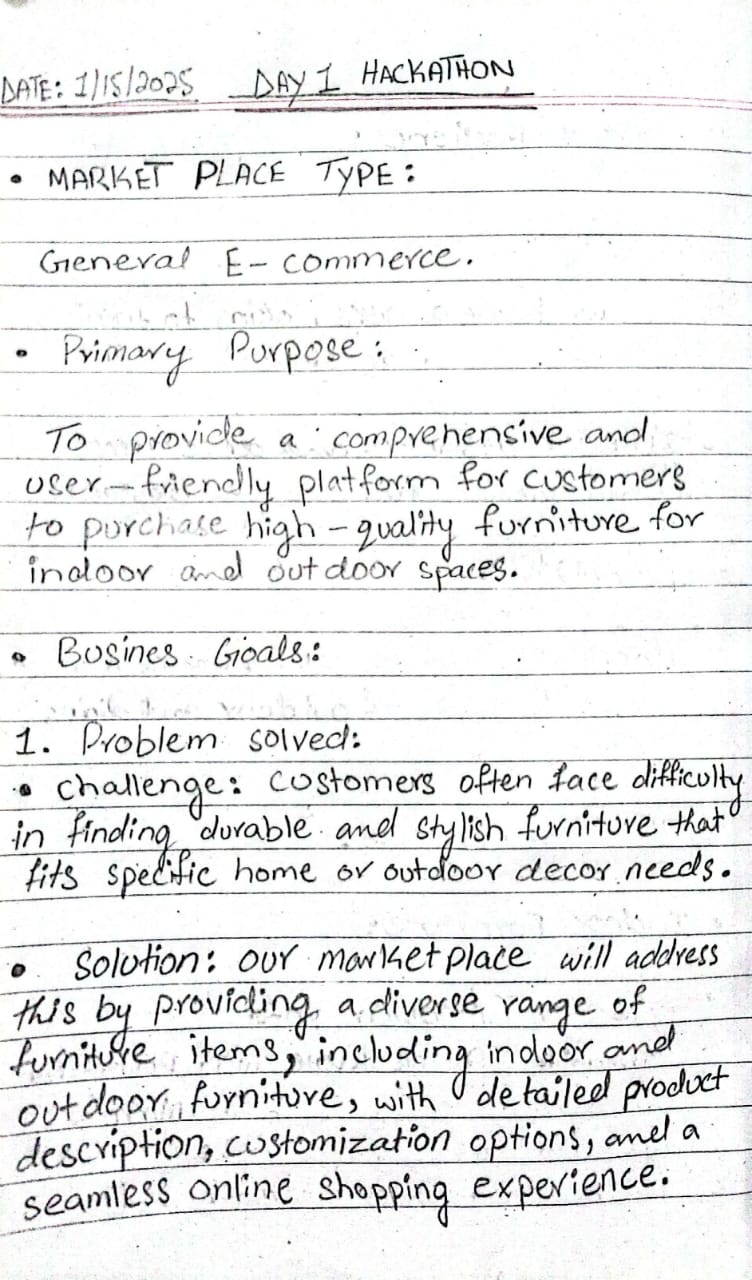 DATE: 1/15/2025 DAY 1 HACKATHON
• MARKET PLACE TYPE:
General E-commerce.
• Primary Purpose:
To provide a comprehensive and
user-friendly platform for customers
to purchase high-quality furniture for
indoor and outdoor spaces.
• Busines Goals:
1. Problem solved:
• challenge: customers often face difficulty
in finding durable and stylish furniture that
fits specific home or outdoor decor needs.
• Solution: our marketplace will address
this by providing a diverse range of
furniture items, including indoor and
outdoor furniture, with detailed product
description, customization options, and a
seamless online shopping experience.